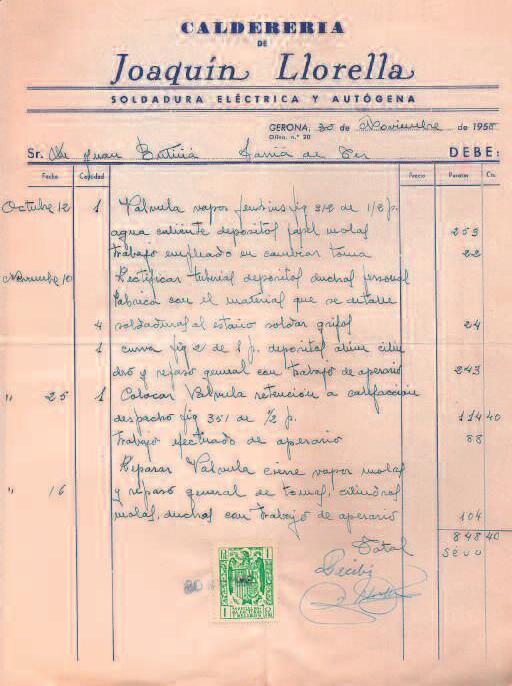 CALDERERIA
DE
Joaquín Llorella
SOLDADURA ELÉCTRICA Y AUTÓGENA
GERONA, 30 de Noviembre de 1955
Oficn. n.º 20
Sr. Juan Sarriá de Ter DEBE:
Fecha Cantidad Precio Pesetas Cts.
Octubre 12 1 Valvula vapor jenkins fig 312 de 1/2 p.
agua caliente depositos papel molas 253
trabajo empleado en cambiar toma 22
Noviembre 10 Rectificar tuberias depositos duchas personal
fabrica con el material que se detalle
4 soldaduras al estaño soldar grifos 24
1 curva fig 2 de 1 p. depositos
y repaso general con trabajo de operario 243
" 25 1 Colocar Valvula retención a calefacción
despacho fig 351 de 1/2 p. 114 40
trabajo efectuado de operario 88
Reparar Valvula cierre vapor molas
" 16 y repaso general de tomas, cilindros
molas, duchas con trabajo de operario 104
Total 848 40
Recibí
1 1